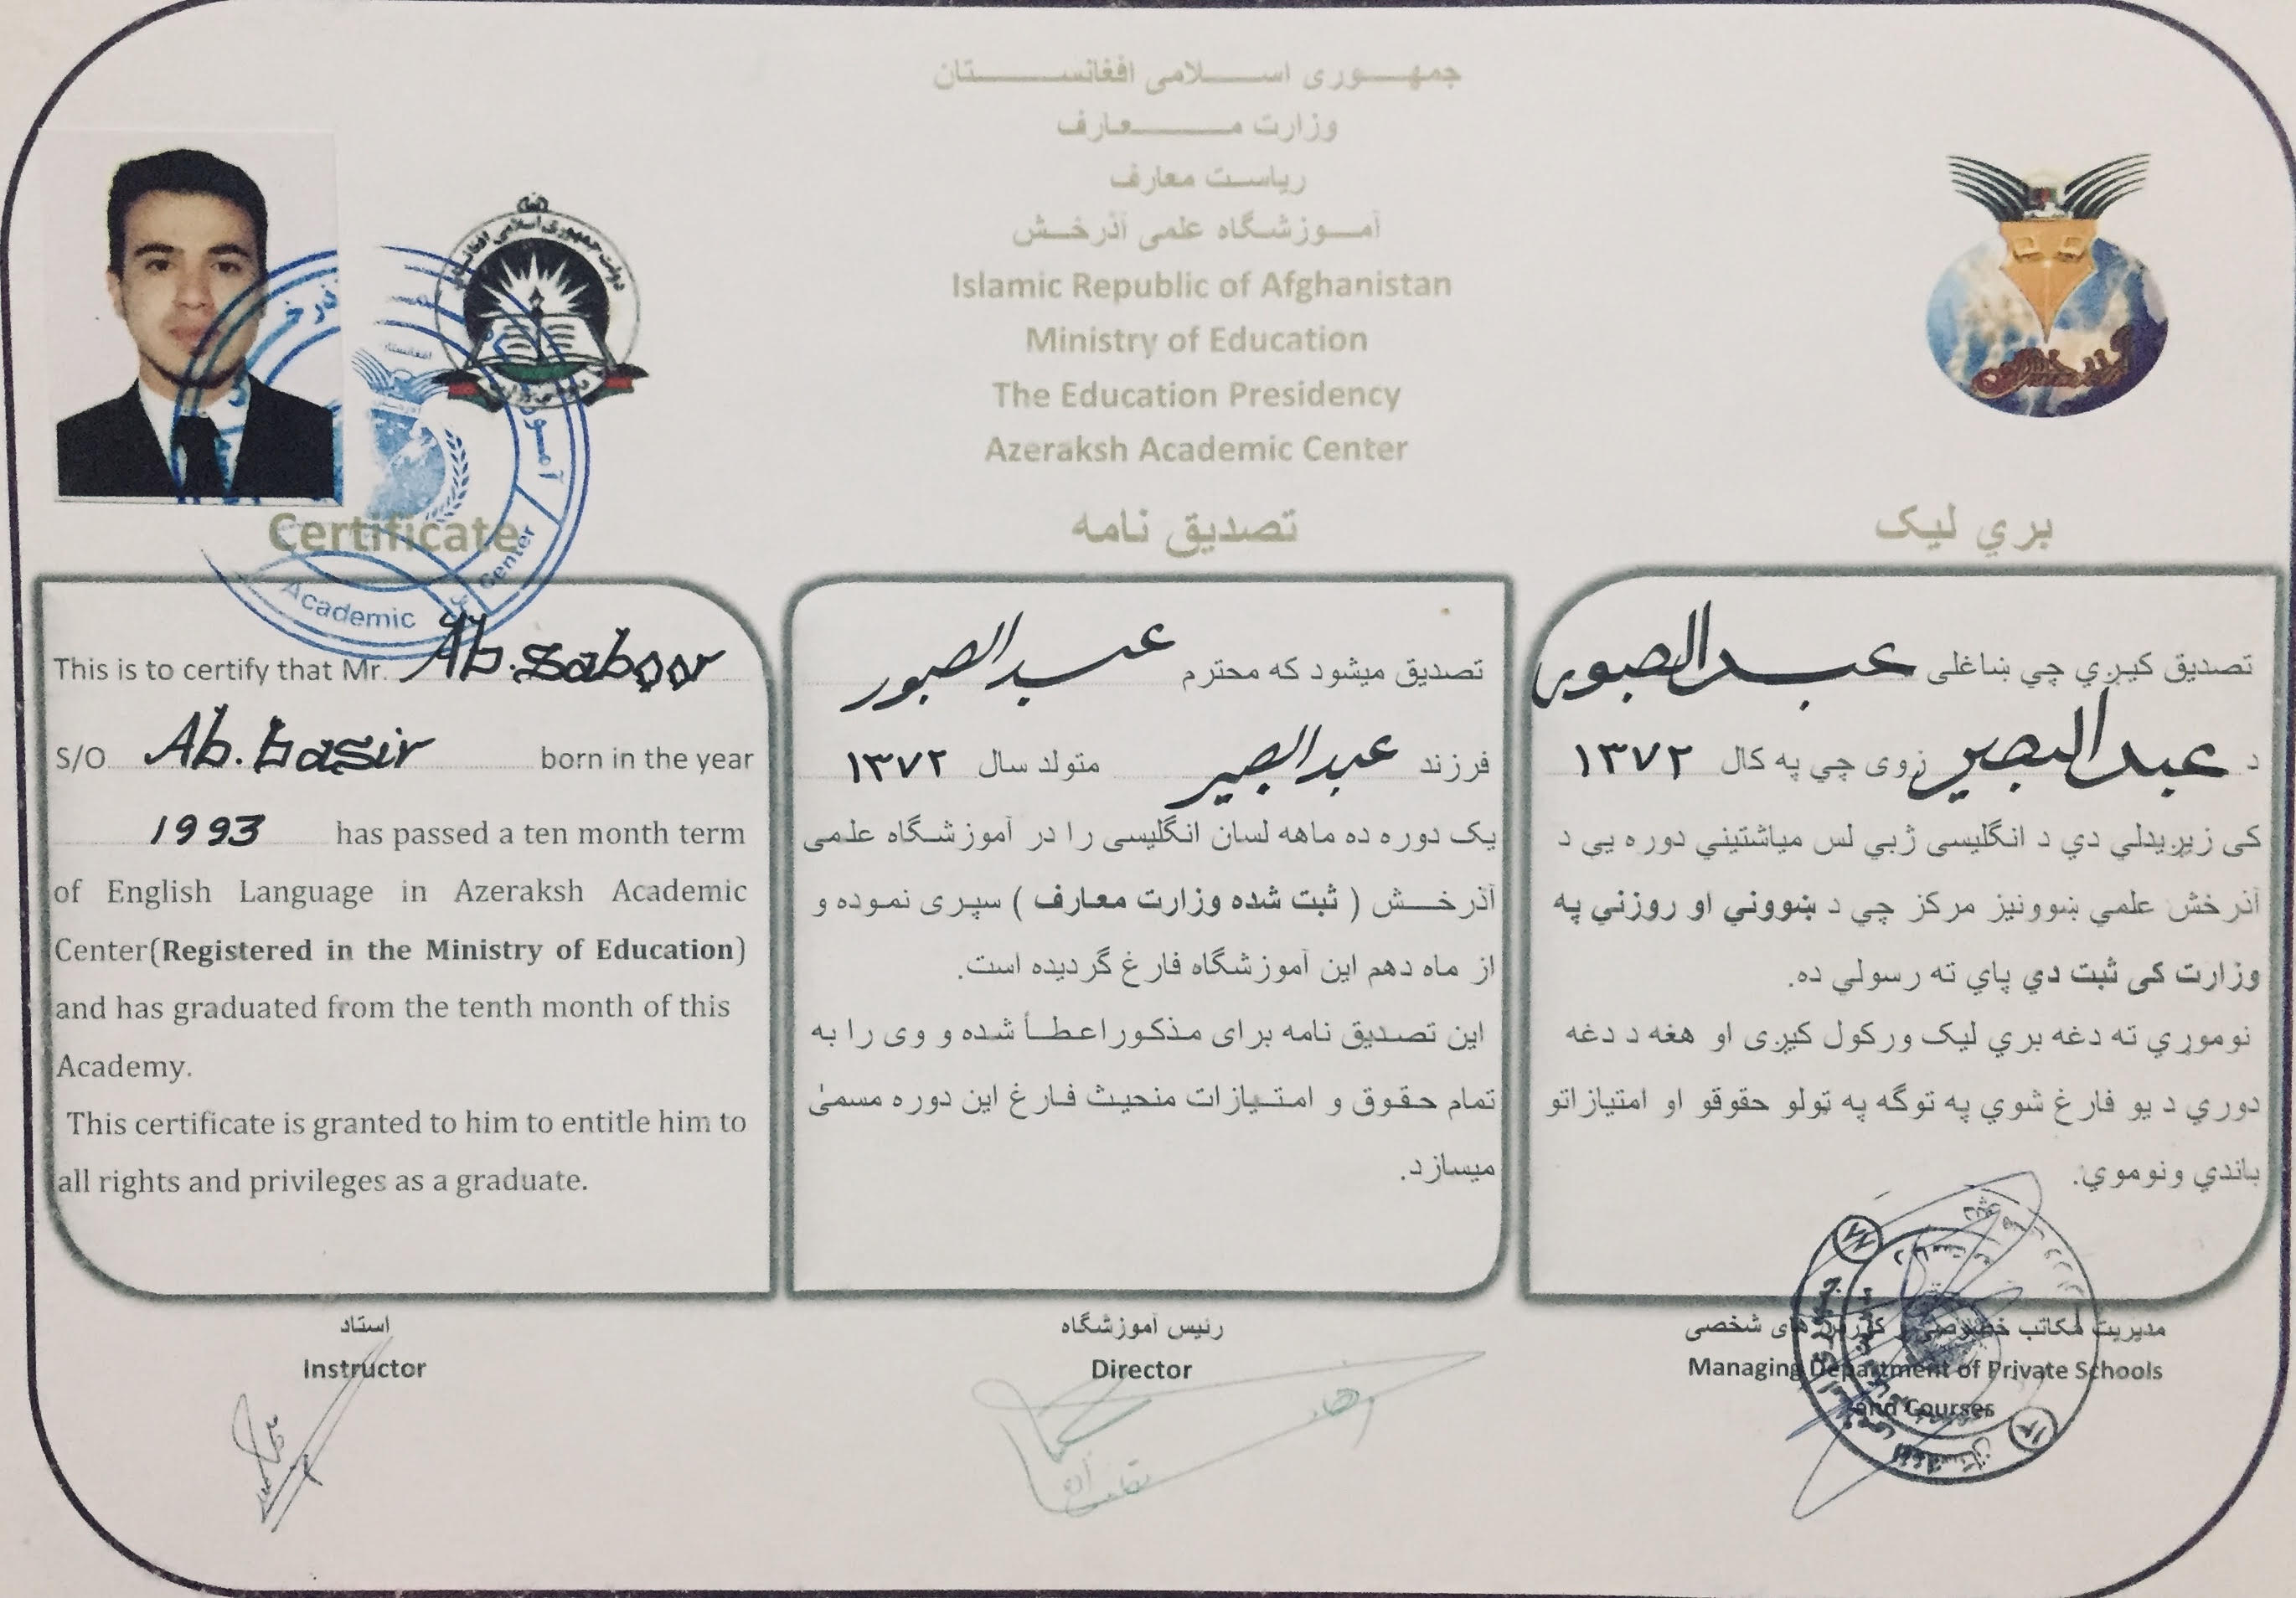 جمهوری اسلامی افغانستان
وزارت معارف
ریاست معارف
آموزشگاه علمی آذرخش
Islamic Republic of Afghanistan
Ministry of Education
The Education Presidency
Azeraksh Academic Center
Certificate
تصدیق نامه
بري لیک
Academic Center
This is to certify that Mr. Ab.saboor
S/O Ab.basir born in the year
1993 has passed a ten month term
of English Language in Azeraksh Academic
Center(Registered in the Ministry of Education)
and has graduated from the tenth month of this
Academy.
This certificate is granted to him to entitle him to
all rights and privileges as a graduate.
تصدیق میشود که محترم عبدالصبور
فرزند عبدالبصیر متولد سال ۱۳۷۲
یک دوره ده ماهه لسان انگلیسی را در آموزشگاه علمی
آذرخش ( ثبت شده وزارت معارف ) سپری نموده و
از ماه دهم این آموزشگاه فارغ گردیده است.
این تصدیق نامه برای مذکور اعطأ شده و وی را به
تمام حقوق و امتیازات منحیث فارغ این دوره مسمیٰ
میسازد.
تصدیق کیږي چي ښاغلی عبدالصبور
د عبدالبصیر زوی چي په کال ۱۳۷۲
کی زیږیدلي دي د انگلیسی ژبي لس میاشتیني دوره یی د
آذرخش علمي ښوونیز مرکز چي د ښووني او روزني په
وزارت کی ثبت دي پاي ته رسولي ده.
نوموړي ته دغه بري لیک ورکول کیږی او هغه د دغه
دوري د یو فارغ شوي په توگه په ټولو حقوقو او امتیازاتو
باندي ونوموي.
استاد
Instructor
رئیس آموزشگاه
Director
مدیریت مکاتب خصوصی و کورس های شخصی
Managing Department of Private Schools
and Courses